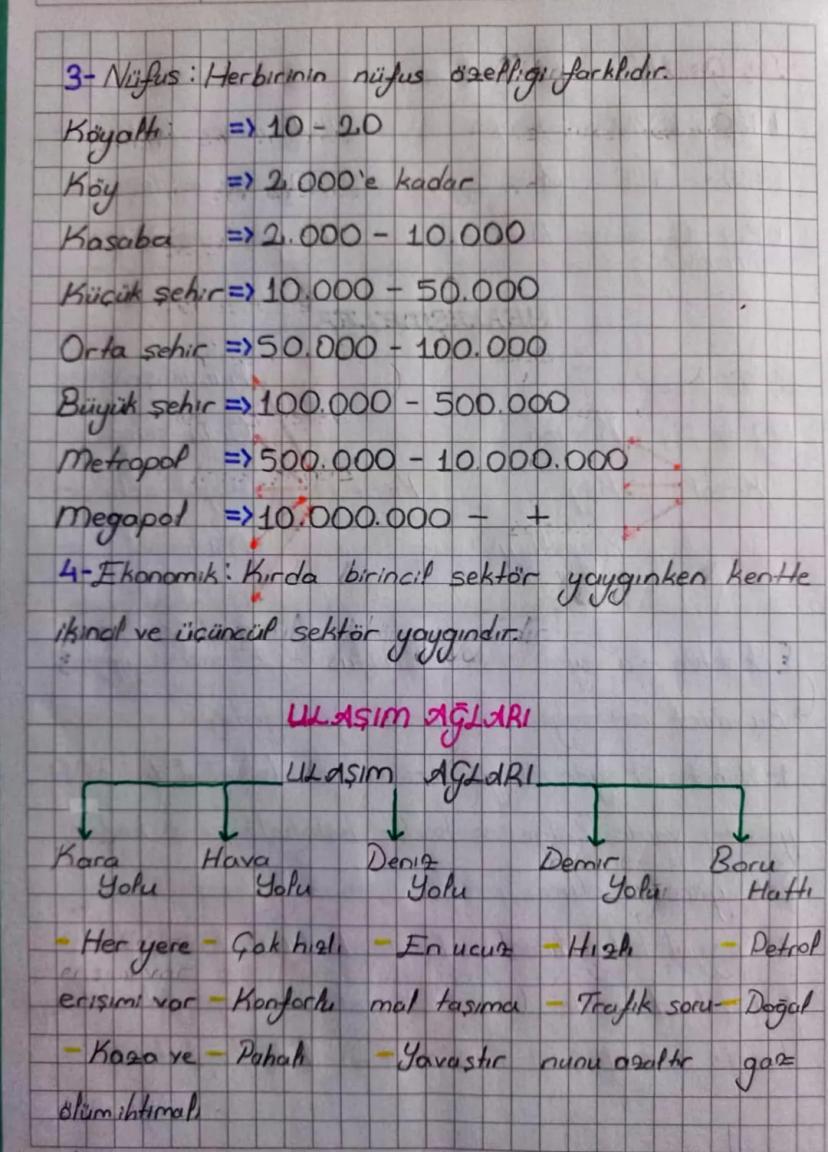 3- Nüfus : Herbirinin nüfus özelliği farklıdır.
Köyaltı: => 10 - 20
Köy => 2.000'e kadar
Kasaba => 2.000 - 10.000
Küçük şehir => 10.000 - 50.000
Orta şehir => 50.000 - 100.000
Büyük şehir => 100.000 - 500.000
Metropol => 500.000 - 10.000.000
Megapol => 10.000.000 - +
4- Ekonomik : Kırda birincil sektör yaygınken kentte
ikincil ve üçüncül sektör yaygındır.
ULAŞIM AĞLARI
ULAŞIM AĞLARI
Kara Hava Deniz Demir Boru
Yolu Yolu Yolu Yolu Hattı
- Her yere - Çok hızlı - En ucuz - Hızlı - Petrol
erişimi var - Konforlu mal taşıma - Trafik soru- - Doğal
- Kaza ve - Pahalı - Yavaştır nunu azaltır gaz
ölüm ihtimali